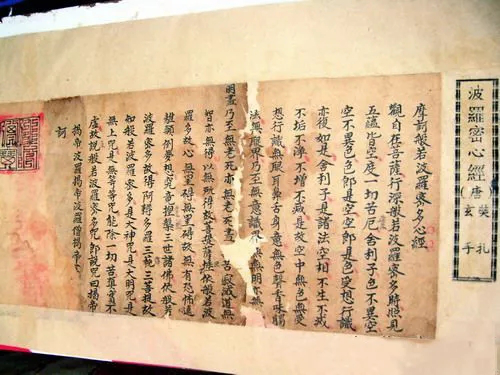 波羅密心經
唐玄奘手札
摩訶般若波羅蜜多心經
觀自在菩薩行深般若波羅蜜多時照見
五蘊皆空度一切苦厄舍利子色不異空
空不異色色即是空空即是色受想行識
亦復如是舍利子是諸法空相不生不滅
不垢不淨不增不減是故空中無色無受
想行識無眼耳鼻舌身意無色聲香味觸
法無眼界乃至無意識界無無明亦無
明盡乃至無老死亦無老死 苦寂滅道無
智亦無得以無所得故菩提薩埵依般若波
羅蜜多故心無罣礙無罣礙故無有恐怖遠
離顛倒夢想究竟涅槃三世諸佛依般若
波羅蜜多故得阿耨多羅三藐三菩提故
知般若波羅蜜多是大神咒是大明咒是
無上咒是無等等咒能除一切苦真實不
虛故說般若波羅蜜多咒即說咒曰揭帝
揭帝波羅揭帝波羅僧揭帝
訶